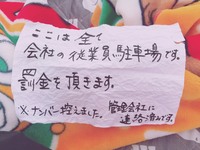 ここは全て
会社の従業員駐車場です。
罰金を頂きます。
※ナンバー控えました。管理会社に
連絡済みです。